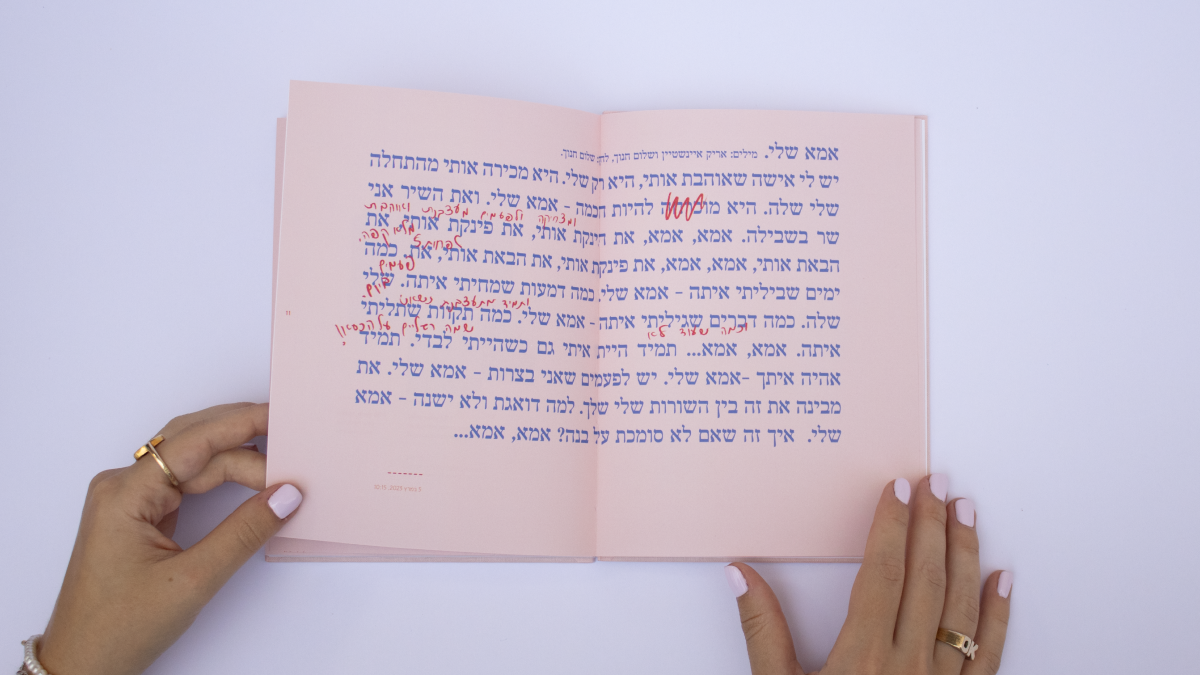 אמא שלי. מילים: אריק איינשטיין ושלום חנוך, לחן: שלום חנוך.
יש לי אישה שאוהבת אותי, היא רק שלי. היא מכירה אותי מהתחלה
שלי שלה. היא להיות חכמה - אמא שלי. ואת השיר אני
ומצחיקה ולפעמים מעצבנת ואוהבת
מלא קפה.
שר בשבילה. אמא, אמא, את חינקת אותי, את פינקת אותי, את
לפחות 5
פעמים
ביום.
הבאת אותי, אמא, אמא, את פינקת אותי, את הבאת אותי, את. כמה
ימים שביליתי איתה - אמא שלי. כמה דמעות שמחיתי איתה. שלי
ותמיד מתעצבנת כשאני
שמה רגליים על הכסאון
שלה. כמה דברים שגיליתי איתה - אמא שלי. כמה תקוות שתליתי
וכמה שעוד לא
איתה. אמא, אמא... תמיד היית איתי גם כשהייתי לבדי. תמיד
אהיה איתך -אמא שלי. יש לפעמים שאני בצרות - אמא שלי. את
מבינה את זה בין השורות שלי שלך. למה דואגת ולא ישנה - אמא
שלי. איך זה שאם לא סומכת על בנה? אמא, אמא...
11